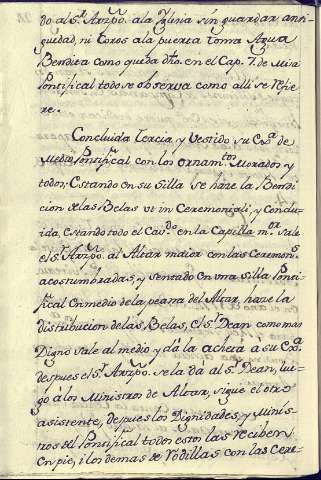 do al Sr. Arzpo. a la Iglesia sin guardar anti-
guedad, ni Coros a la puerta toma Agua
Bendita como queda dho. en el Cap. 7. de Missa
Pontifical todo se observa como alli se refie-
re.
Concluida Tercia, y Vestido su Exa. de
Medio Pontifical con los ornamtos. Morados y
todos, Estando en su silla se haze la Bendi
cion de las Belas ut in Ceremoniali, y Conclu-
ida, Estando todo el Cavdo. en la Capilla mor. sale
el Sr. Arzpo. al Altar maior con las Ceremons.
acostumbradas, y sentado en una silla Ponti-
fical en medio de la peana del Altar, haze la
distribucion de las Belas, el Sr. Dean como mas
Digno sale al medio y da la acheta a su Exa.
despues el Sr. Arzpo. se la da al Sr. Dean, lue-
go a los Ministros de Altar, sigue el otro
asistente, despues los Dignidades, y Minis-
tros del Pontifical todos estos las reciben
en pie, i los demas de Rodillas con las Cere-